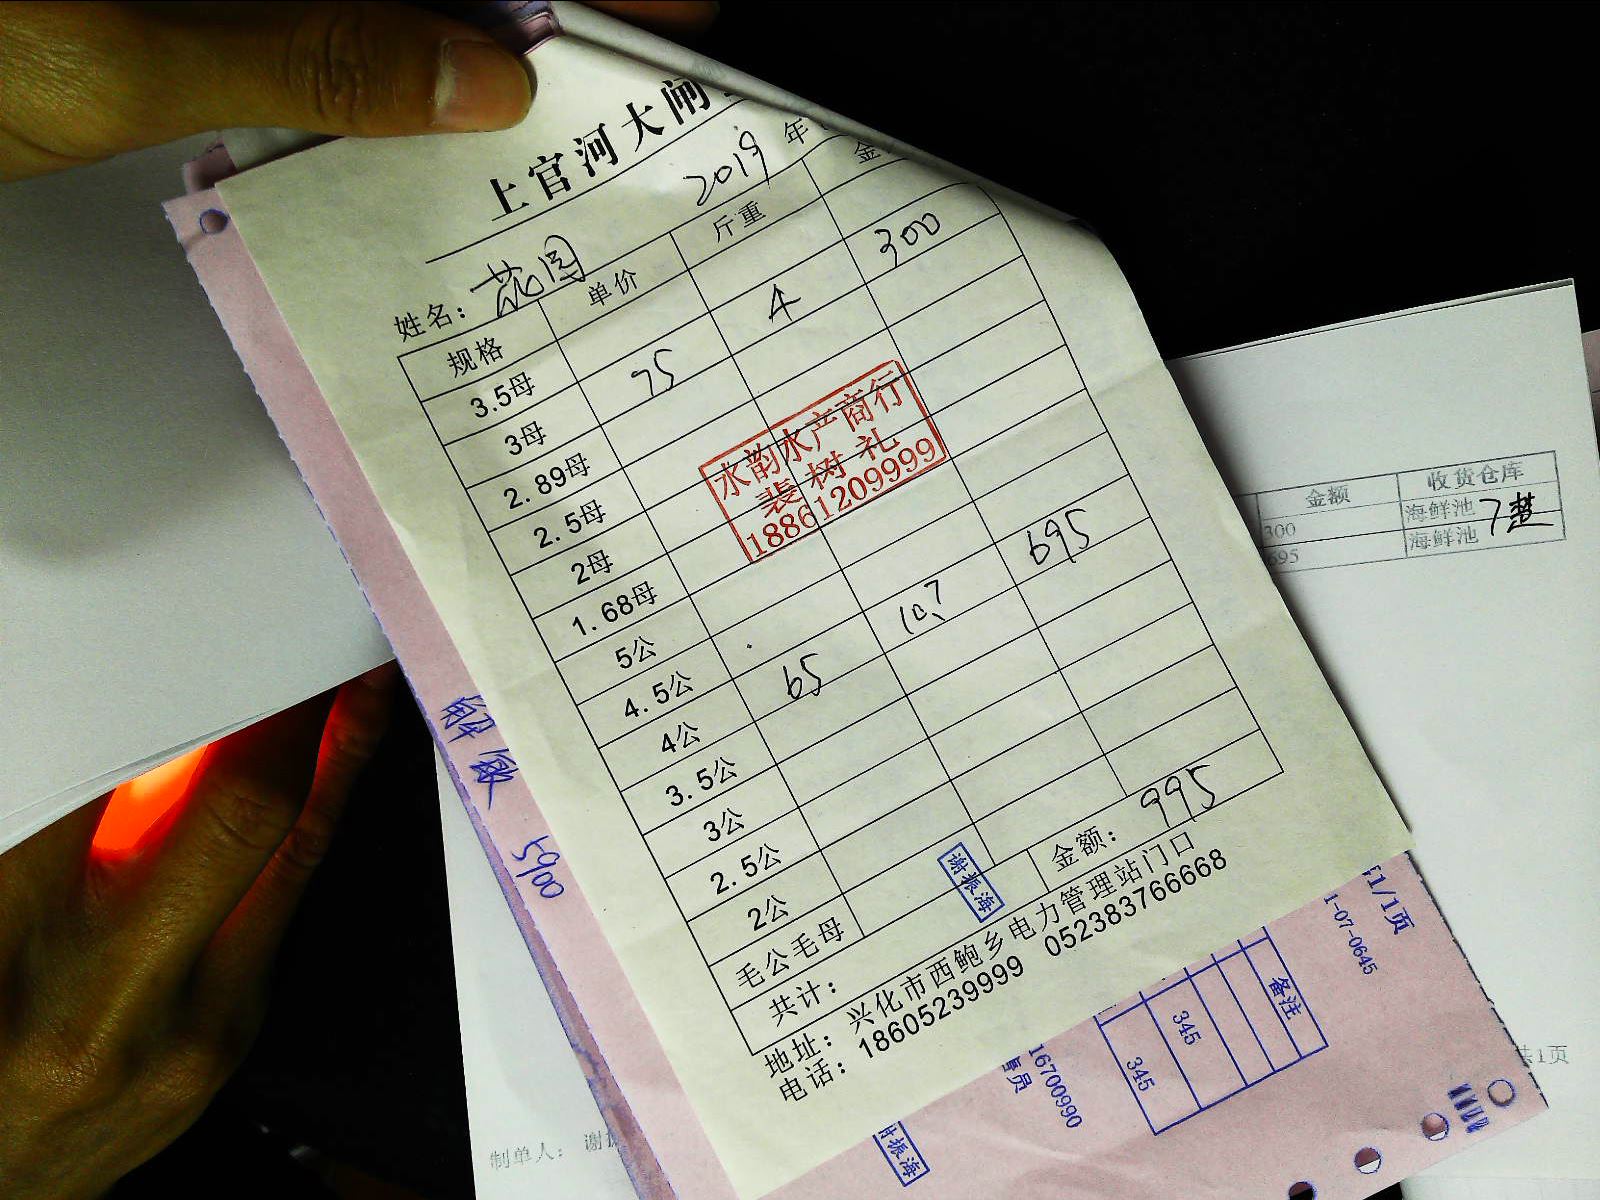 上官河大闸
2019年
姓名：花园
规格 单价 斤重 金
3.5母 75 4 300
3母
2.89母
2.5母
2母
1.68母
5公
4.5公
4公 65 10.7 695
3.5公
3公
2.5公
2公
毛公毛母
共计： 金额：995
地址：兴化市西鲍乡电力管理站门口
电话：18605239999 05238376668
水韵水产商行
裴树礼
18861209999
谢振海
解敏 5900
金额 收货仓库
300 海鲜池
695 海鲜池
共1页
制单人：谢振
1/1页
1-07-0645
备注
345
345
16700990
售员
谢振海